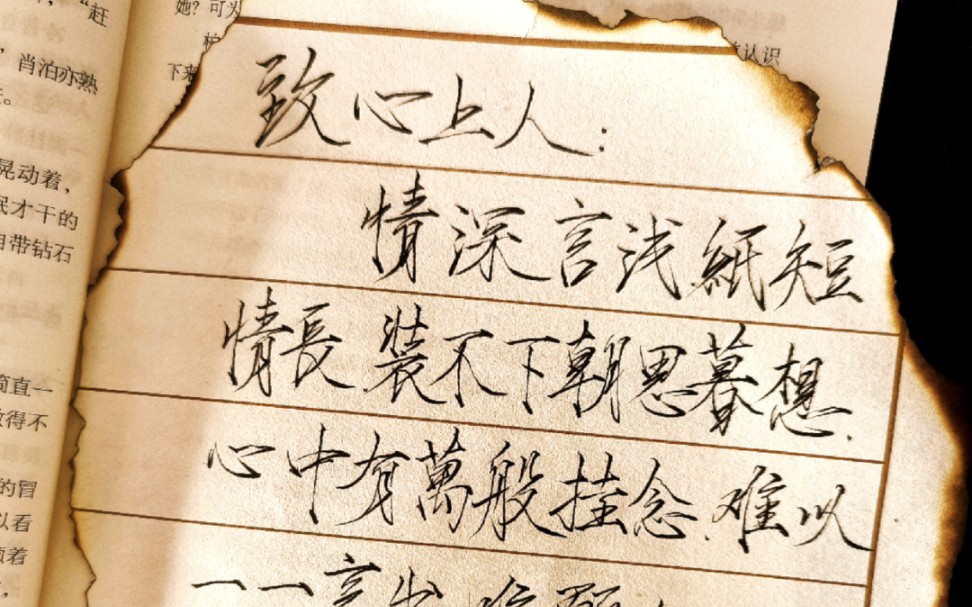 致心上人：
情深言浅紙短
情長 装不下朝思暮想.
心中有萬般挂念.难以
一一言出
"赶
肖泊亦熟
晃动着，
民才干的
自带钻石
简直一
做得不
的冒
以看
她？可为
下来
认识